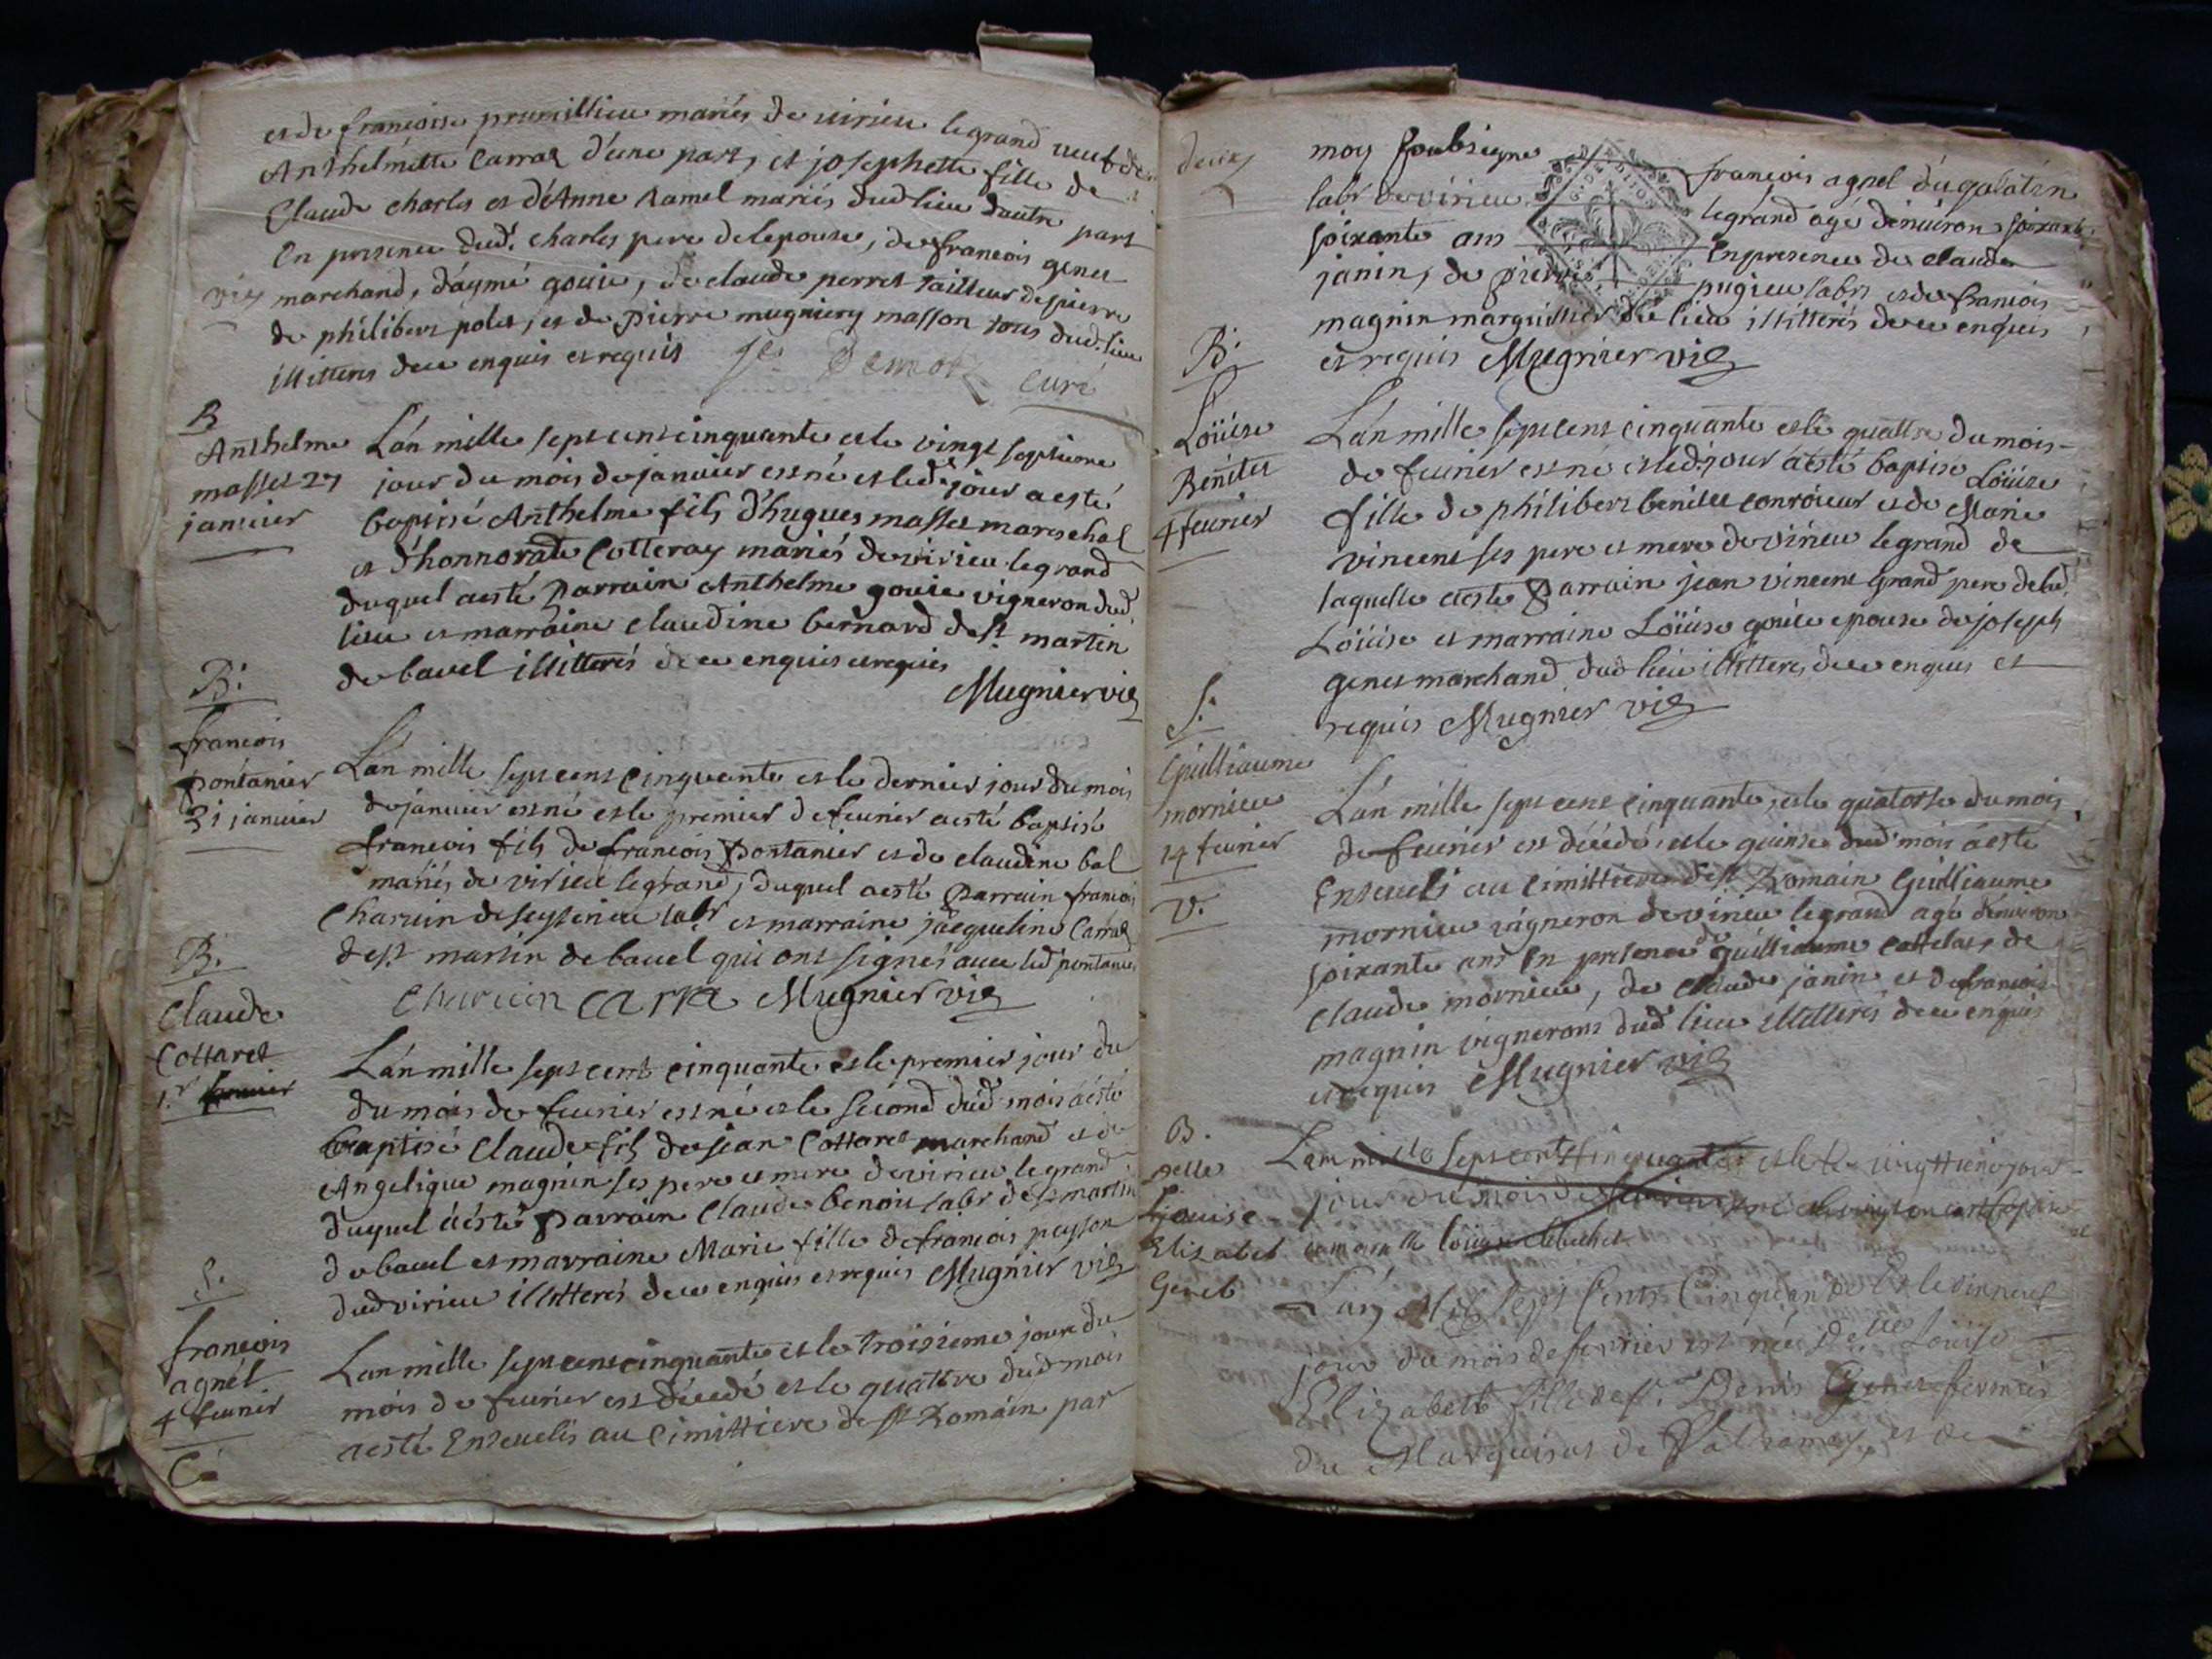 et de françoise prumillieu mariés de virieu legrand veuf de
Anthelmette Carraz d'une part, et josephette fille de
Claude charles et d'Anne Ramel mariés dud lieu dautre part
En presence dud. charles pere delepouse, de françois genet
marchand, d'aymé gouie, de claude perret tailleur de pierre
de philibert polet, et de pierre mugniery masson tous dud. lieu
illitterés de ce enquis et requis Demotz curé
B
Anthelme
masset 27
janvier
L'an mille sept cent cinquante et le vingt septieme
jour du mois de janvier est né et led. jour a esté
baptisé Anthelme fils d'hugues masset mareschal
et d'honnorade Cotteray mariés de virieu legrand
duquel a esté Parrain Anthelme gouie vigneron dud
lieu et marraine claudine bernard de st martin
de bavel illitterés de ce enquis et requis
Mugnier vic
B.
françois
pontanier
31 janvier
L'an mille sept cent cinquante et le dernier jour du mois
de janvier est né et le premier de fevrier a esté baptisé
françois fils de françois Pontanier et de claudine bal
mariés de virieu legrand, duquel a esté Parrain françois
Charvin de seyssenieu labr et marraine jacqueline Carraz
de st. martin de bavel qui ont signés avec led pontanier
Charvin Carra Mugnier vic
B.
Claude
Cottaret
1.r
L'an mille sept cent cinquante et le premier jour du
du mois de fevrier est né et le second dud mois a esté
baptisé Claude fils de jean Cottaret marchand et de
Angelique magnin ses pere et mere de virieu legrand
duquel a esté Parrain Claude benoit labr de st martin
de bavel et marraine Marie fille de françois peysson
dud virieu illitterés de ce enquis et requis Mugnier vic
S.
françois
agnel
4 fevrier
L'an mille sept cent cinquante et le troisieme jour du
mois de fevrier est décédé et le quattre dud mois
a esté Ensevelis au Cimittiere de st Romain par
deux
moy soubsigné françois agnel dugalatin
labr de virieu legrand agé d'environ soixante
soixante ans En presence de claude
janin, de pierre pugieu labr et de françois
magnin marguillier du lieu illitterés de ce enquis
et requis Mugnier vic
B.
Loüise
Benittet
4 fevrier
L'an mille sept cent cinquante et le quattre du mois
de fevrier est né et led. jour a esté baptisé Loüise
fille de philibert benittet conroieur et de Marie
vincent ses pere et mere de virieu legrand de
laquelle a esté Parrain jean vincent grand pere de lad.
Loüise et marraine Loüise gouie epouse de joseph
genet marchand dud lieu illitterés, de ce enquis et
requis Mugnier vic
S.
Guilliaume
mornieu
14 fevrier
V.
L'an mille sept cent cinquante, et le quatorse du mois
de fevrier est décédé, et le quinse dud mois a esté
Enseveli au Cimittiere de st Romain Guilliaume
mornieu vigneron de virieu legrand agé d'environ
soixante ans En presence de guilliaume cottelat de
claude mornieu, de claude janin et de françois
magnin vignerons dud lieu illitterés de ce enquis
et requis Mugnier vic
B.
Delle
Louise
Elizabet
Genet
L'an mille sept cents cinquante et le
jour du mois de
Lan Mil Sept Cents Cinquante Et le dixneuf
jour du mois de fevrier est née delle Louise
Elizabeth fille de sr. Denis Genet fermier
du Marquisat de Valromey, et de